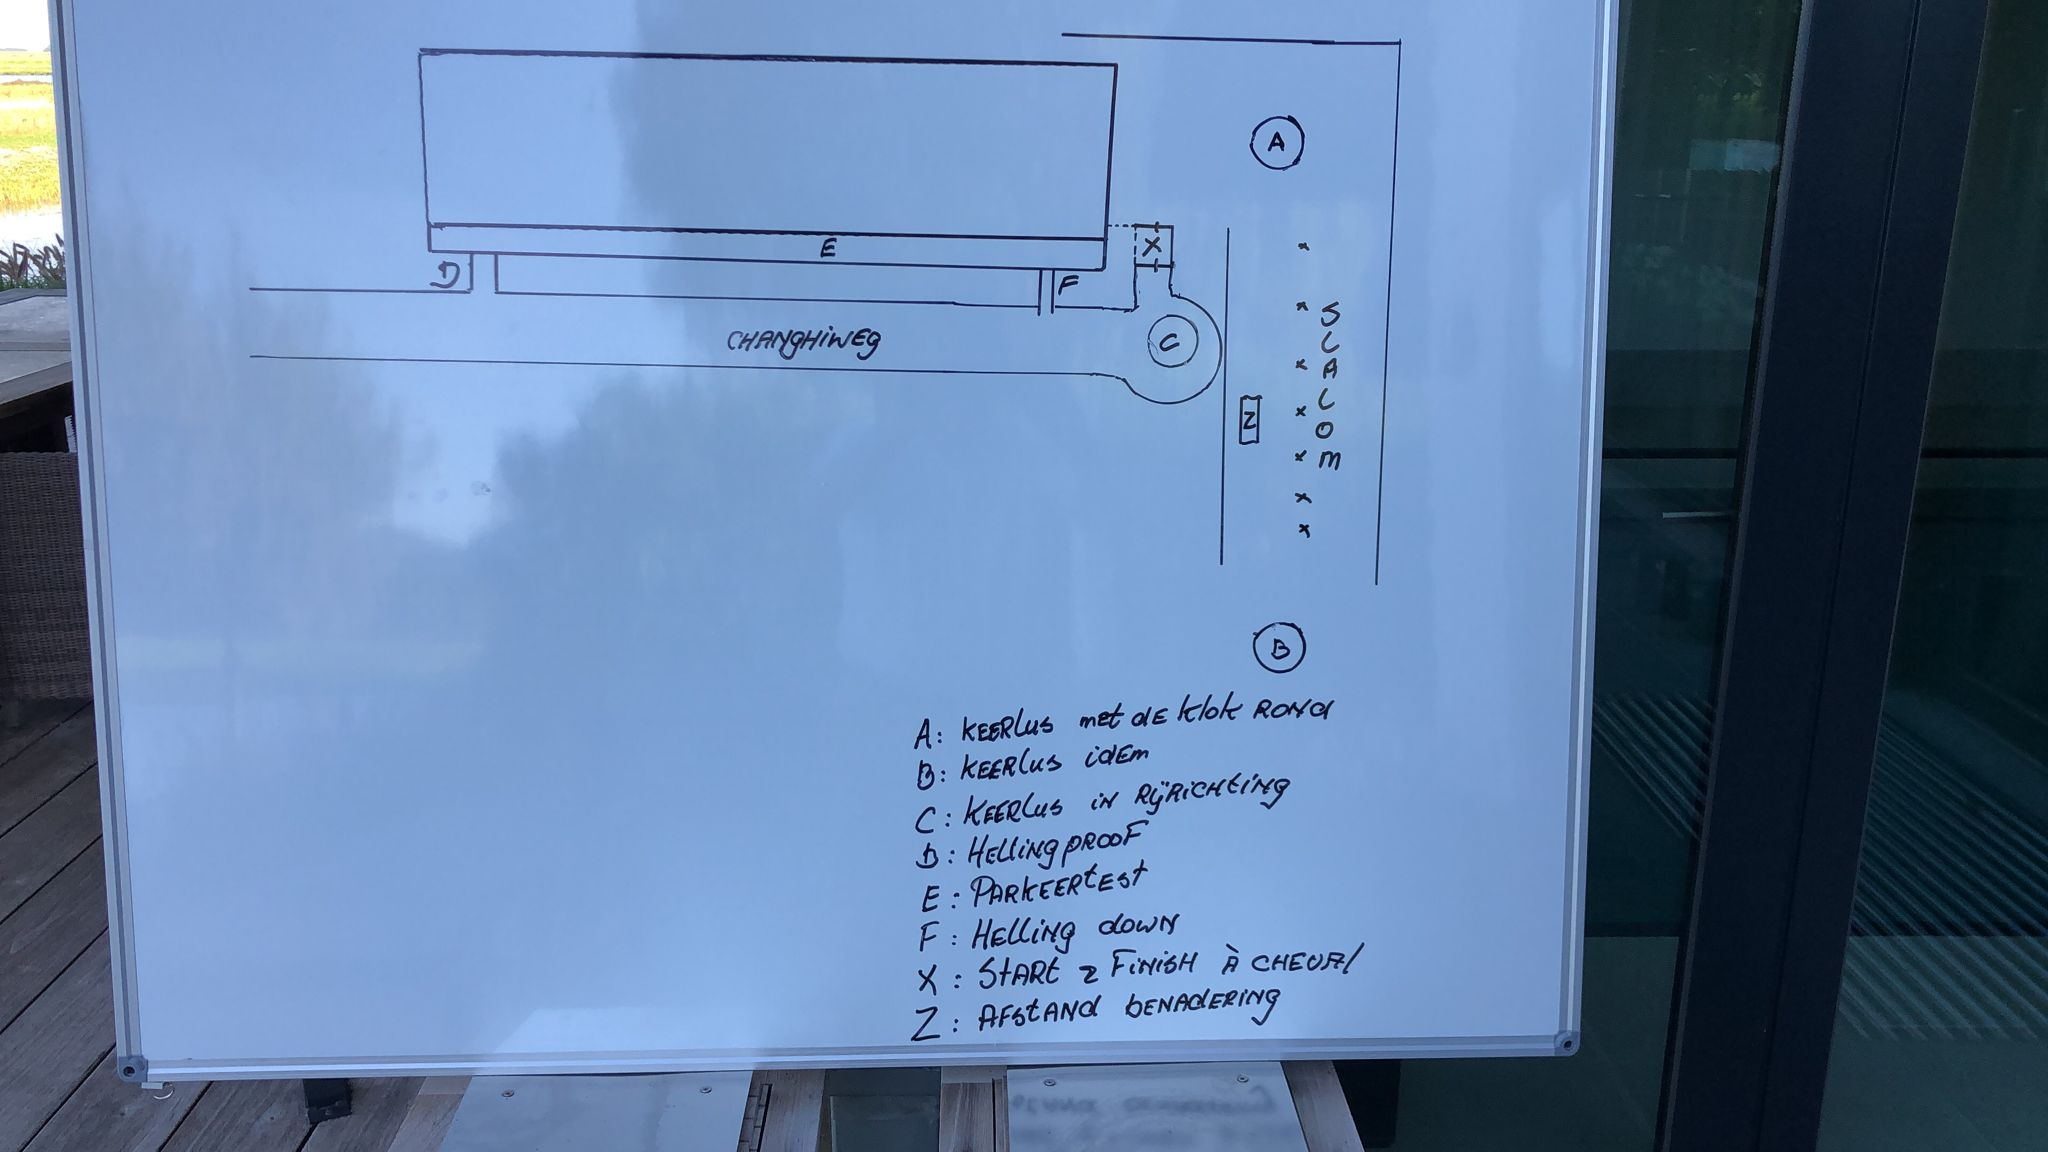 A
X
E
D
F
CHANGHiWEG
C
SLALOM
Z
B
A: KEERlus met dE klok RONd
B: KEERlus idEm
C: KEERlus iN RijRICHtiNG
D: HElliNG pROOF
E: PARKEERtEST
F: HElliNG dowN
X: StARt & FiNiSH À CHEVAl
Z: AFStANd bENAdERiNG